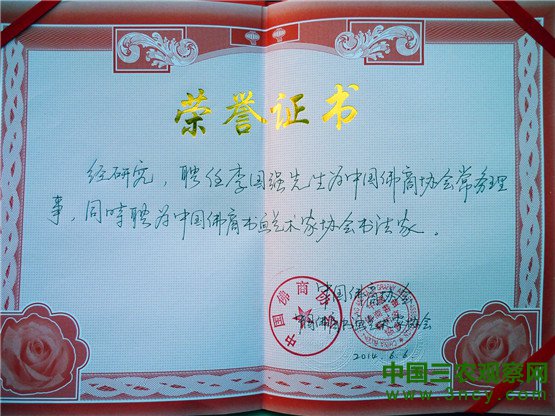 荣誉证书
经研究，聘任李国强先生为中国佛商协会常务理
事，同时聘为中国佛商书画艺术家协会书法家。
中国佛商协会
中国佛商书画艺术家协会
2014.6.6
中国佛商
中国三农观察网
www.3ncy.com